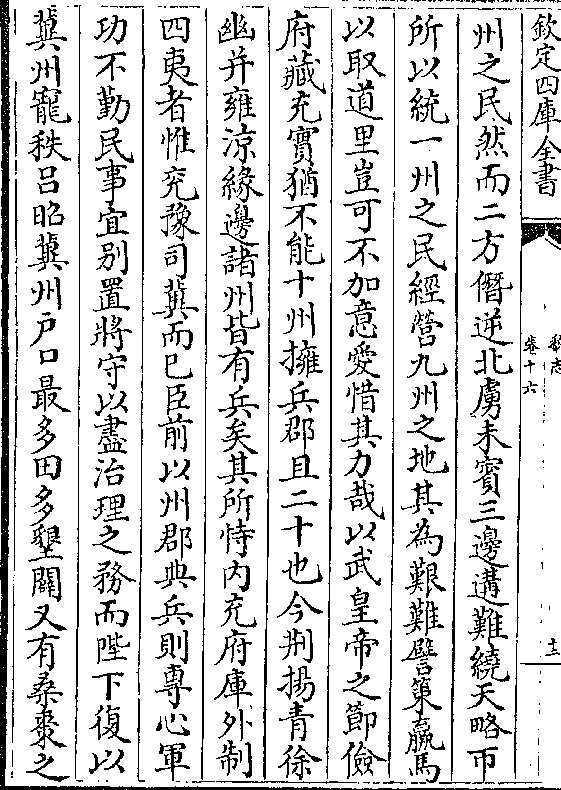 欽定四庫全書
魏志
卷十六
十三
州之民然而二方僭逆北虜未賓三邊遘難繞天略帀
所以統一州之民經營九州之地其為艱難譬策羸馬
以取道里豈可不加意愛惜其力哉以武皇帝之節儉
府藏充實猶不能十州擁兵郡且二十也今荆揚青徐
幽并雍涼緣邊諸州皆有兵矣其所恃内充府庫外制
四夷者惟兖豫司冀而已臣前以州郡典兵則專心軍
功不勤民事宜别置將守以盡治理之務而陛下復以
冀州寵秩吕昭冀州户口最多田多墾闢又有桑棗之